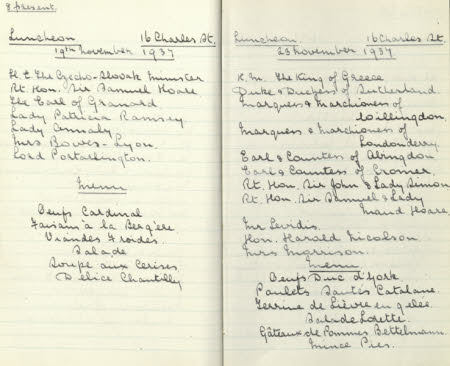 8 present.
Luncheon 16 Charles St.
19th November 1937
H.E. The Czecho-Slovak Minister
Rt. Hon. Sir Samuel Hoare
The Earl of Granard
Lady Patricia Ramsey
Lady Annaly
Mrs Bowes-Lyon.
Lord Portarlington.
Menu
Oeufs Cardinal
Faisan a la Bergère
Viandes Froides.
Salade
Soupe aux Cerises
Délice Chantilly
Luncheon 16 Charles St.
23 November 1937
H.M. The King of Greece
Duke & Duchess of Sutherland.
Marquess & Marchioness of
Willingdon.
Marquess & Marchioness of
Londonderry.
Earl & Countess of Abingdon
Earl & Countess of Cromer.
Rt. Hon. Sir John & Lady Simon
Rt. Hon. Sir Samuel & Lady
Maud Hoare.
Mr Levidis.
Hon. Harold Nicolson
Mrs Morrison.
Menu
Oeufs Duc d'York.
Poulets Sautés Catalane.
Terrine de Lièvre en gelée.
Salade Lorette.
Gâteaux de Pommes Bettelmann.
Mince Pies.